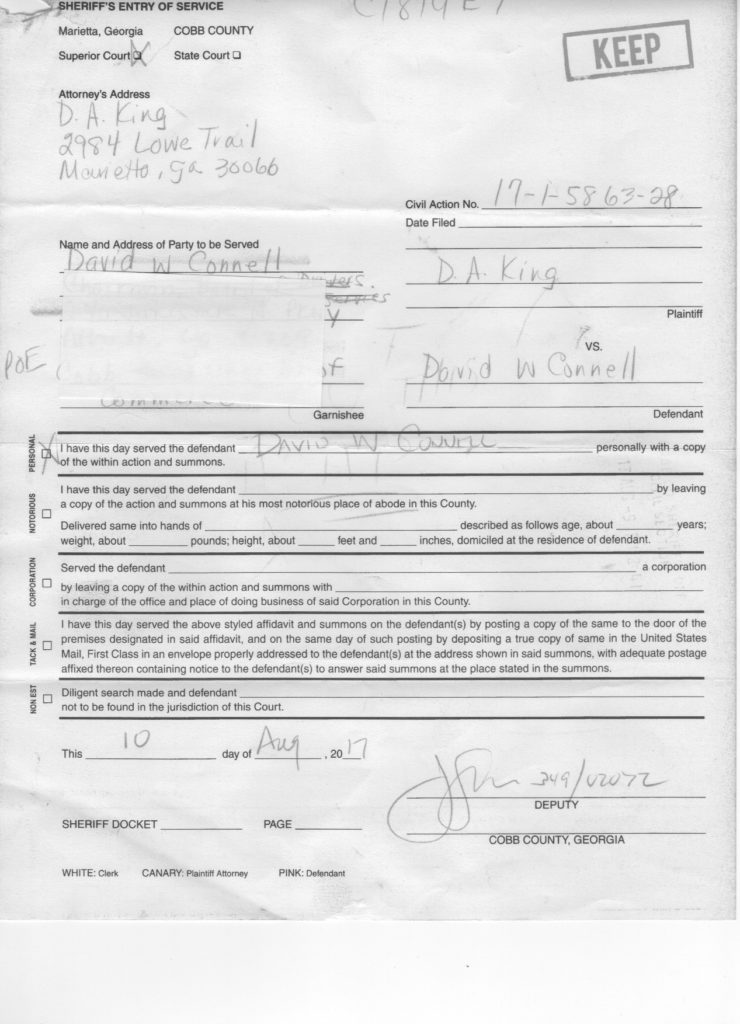 SHERIFF'S ENTRY OF SERVICE
Marietta, Georgia COBB COUNTY
Superior Court State Court
KEEP
Attorney's Address
D. A. King
2984 Lowe Trail
Marietta, Ga 30066
Civil Action No. 17-1-5863-28
Date Filed
Name and Address of Party to be Served
David W Connell
D. A. King
Plaintiff
VS.
POE
David W Connell
Garnishee
Defendant
PERSONAL
I have this day served the defendant DAVID W CONNELL personally with a copy
of the within action and summons.
NOTORIOUS
I have this day served the defendant by leaving
a copy of the action and summons at his most notorious place of abode in this County.
Delivered same into hands of described as follows age, about years;
weight, about pounds; height, about feet and inches, domiciled at the residence of defendant.
CORPORATION
Served the defendant a corporation
by leaving a copy of the within action and summons with
in charge of the office and place of doing business of said Corporation in this County.
TACK & MAIL
I have this day served the above styled affidavit and summons on the defendant(s) by posting a copy of the same to the door of the
premises designated in said affidavit, and on the same day of such posting by depositing a true copy of same in the United States
Mail, First Class in an envelope properly addressed to the defendant(s) at the address shown in said summons, with adequate postage
affixed thereon containing notice to the defendant(s) to answer said summons at the place stated in the summons.
NON EST
Diligent search made and defendant
not to be found in the jurisdiction of this Court.
This 10 day of Aug, 2017
349/02072
DEPUTY
SHERIFF DOCKET PAGE
COBB COUNTY, GEORGIA
WHITE: Clerk CANARY: Plaintiff Attorney PINK: Defendant